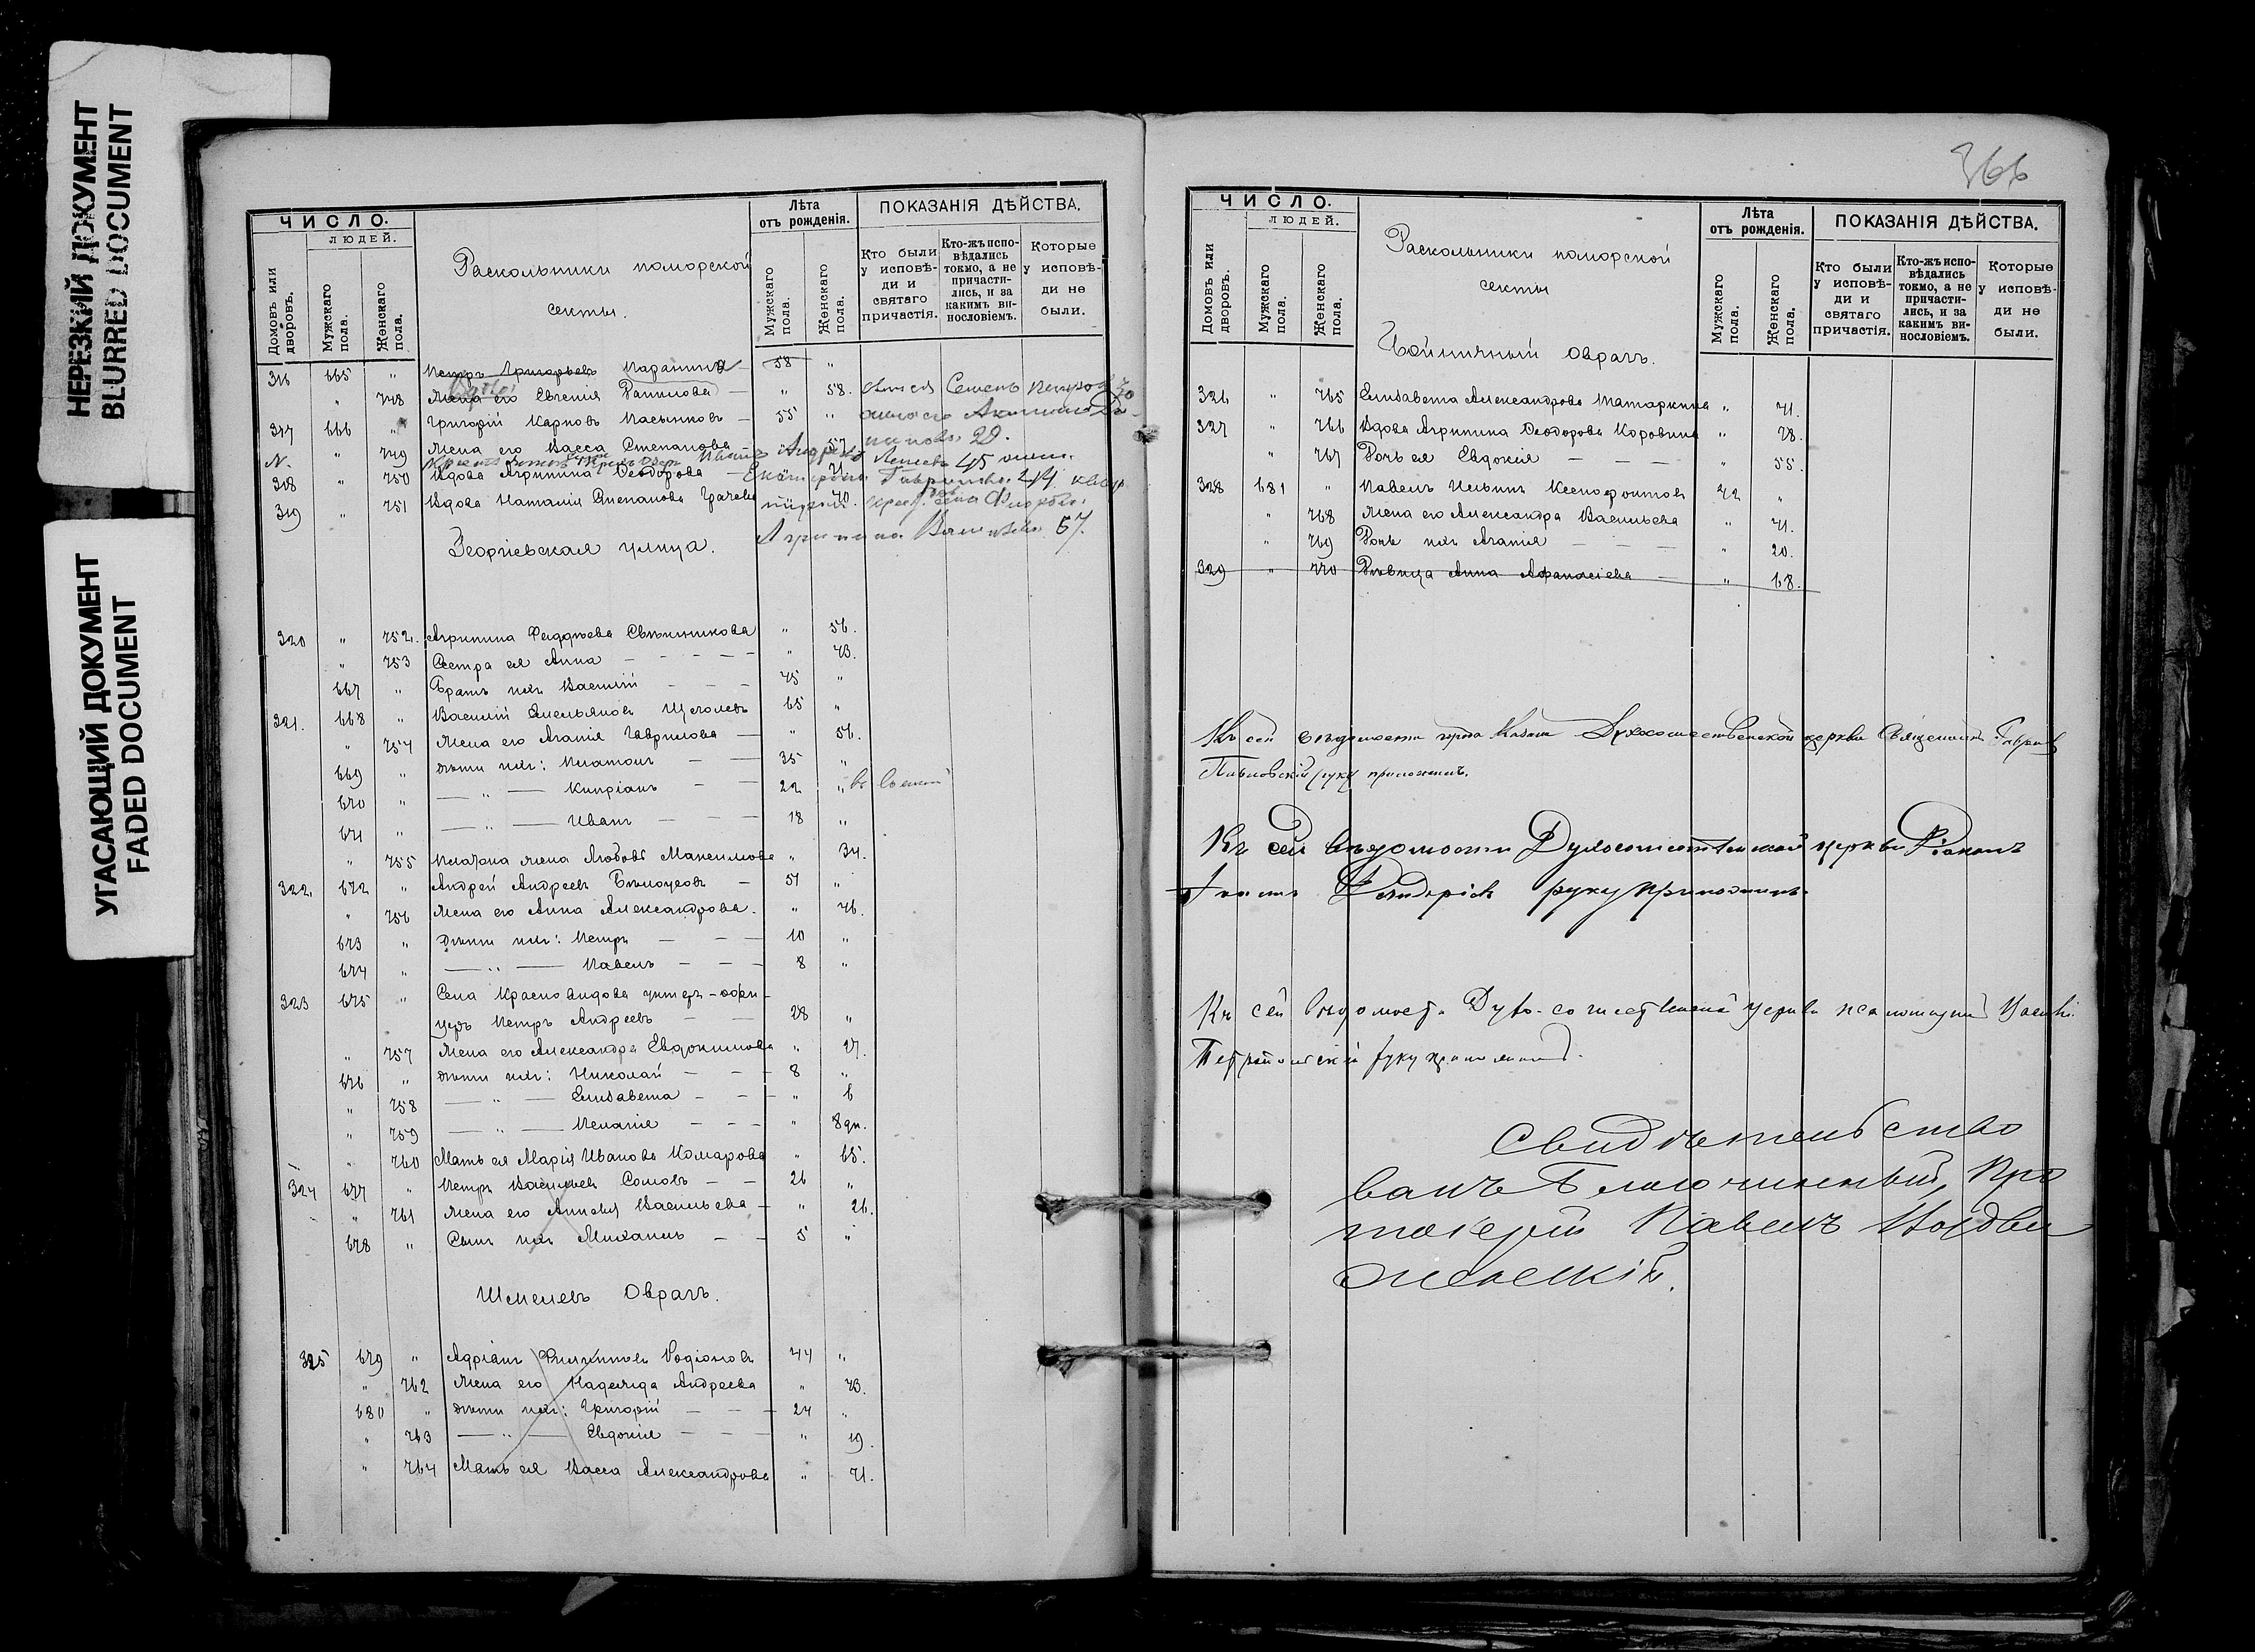 НЕРЕЗКИЙ ДОКУМЕНТ
BLURRED DOCUMENT
УГАСАЮЩИЙ ДОКУМЕНТ
FADED DOCUMENT
ЧИСЛО.
ЛЮДЕЙ.
Домовъ или дворовъ.
Мужскаго пола.
Женскаго пола.
Раскольники поморской
секты.
Лѣта
отъ рожденія.
Мужскаго пола.
Женскаго пола.
ПОКАЗАНІЯ ДѢЙСТВА.
Кто были у исповѣди и святаго причастія.
Кто-жъ исповѣдались токмо, а не причастились, и за какимъ винословіемъ.
Которые у исповѣди не были.
316 665 " Петръ Григорьевъ 58 "
" 748 Жена его Евгенія Данилова — " 58. Семенъ Петровъ 30
317 666 " Григорій Карповъ Масленковъ — 55 "
" 749 Жена его Васса Степанова — " 57
318 " 750 Вдова Агрипина Ѳеодорова —
319 " 751 Вдова Наталія Степанова Грачева " 70.
Агрипина 67.
Георгіевская улица.
320 " 752. Агрипина Фаддѣева Свѣшникова " 56.
" 753 Сестра ея Анна — — — — " 43.
667 " Братъ ихъ Василій — — — 45 "
321. 668 " Василій Емельяновъ Щеголевъ 65 "
" 754 Жена его Агапія Гаврилова — " 56.
669 " дѣти ихъ: Платонъ — — 35 "
670 " — " — Кипріанъ — — 22 "
671 " — " — Иванъ — — — 18 "
" 755 Платона жена Любовь Максимова " 34.
322. 672 " Андрей Андреевъ Бѣлоусовъ — 51 "
" 756 Жена его Анна Александрова. " 46.
673 " дѣти ихъ: Петръ — — — 10 "
674 " — " — Павелъ — — — 8 "
323 675 " Села Красновидова унтеръ-офи-
церъ Петръ Андреевъ — — 28 "
" 757 Жена его Александра Евдокимова " 27.
676 " дѣти ихъ: Николай — — — 8 "
" 758 — " — Елизавета — — — " 6
" 759 — " — Меланія — — — " 8 дн.
" 760 Мать ея Марія Иванова Комарова " 65.
324 677 " Петръ Васильевъ Сомовъ — — 26 "
" 761 Жена его Васильева — " 26.
678 " Сынъ ихъ Михаилъ — — 5 "
Шмелевъ Оврагъ.
325 679 " Адріанъ Филипповъ Родіоновъ 44 "
" 762 Жена его Надежда Андреева " 43.
680 " дѣти ихъ: Григорій — — — 24 "
" 763 — " — Евдокія — — — " 19.
" 764 Мать ея Васса Александрова " 71.
366
ЧИСЛО.
ЛЮДЕЙ.
Домовъ или дворовъ.
Мужскаго пола.
Женскаго пола.
Раскольники поморской
секты
Лѣта
отъ рожденія.
Мужскаго пола.
Женскаго пола.
ПОКАЗАНІЯ ДѢЙСТВА.
Кто были у исповѣди и святаго причастія.
Кто-жъ исповѣдались токмо, а не причастились, и за какимъ винословіемъ.
Которые у исповѣди не были.
Оврагъ.
326 " 765 Елизавета Александрова Татаркина " 71.
327 " 766 Вдова Агрипина Ѳеодорова Коровина " 78.
" 767 Дочь ея Евдокія — — — " 55.
328 681 " Павелъ Ильинъ Ксенофонтовъ 42 "
" 768 Жена его Александра Васильева " 41.
" 769 Дочь ихъ Агапія — — — " 20.
329 " 770 Дѣвица Анна Аѳанасіева — " 68.
Къ сей вѣдомости города Казани Духосошественской церкви Священникъ
руку приложилъ.
Къ сей вѣдомости Духосошественской церкви Діаконъ
руку приложилъ.
Къ сей вѣдомости Духо-сошественской церкви псаломщикъ
руку приложилъ.
Свидѣтельство
валъ Благочинный, Про
тоіерей Павелъ